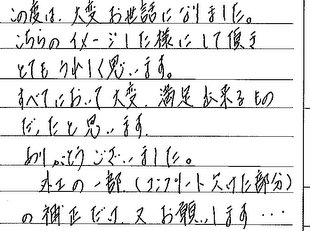 この度は、大変お世話になりました。
こちらのイメージした様にして頂き
とてもうれしく思います。
すべてにおいて大変、満足出来るもの
だったと思います。
ありがとうございました。
外工の一部(コンクリート欠けた部分)
の補正だけ、又お願いします…